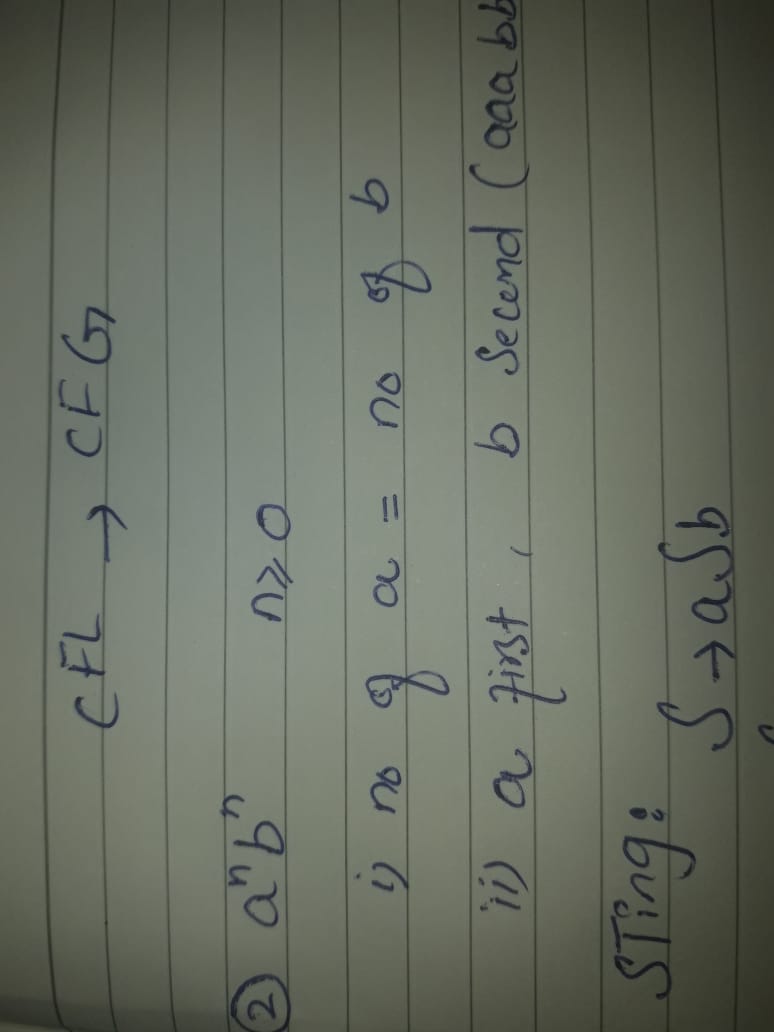 CFL → CFG
② aⁿbⁿ n≥0
i) no of a = no of b
ii) a first, b Second (aaabb
STing: S → aSb